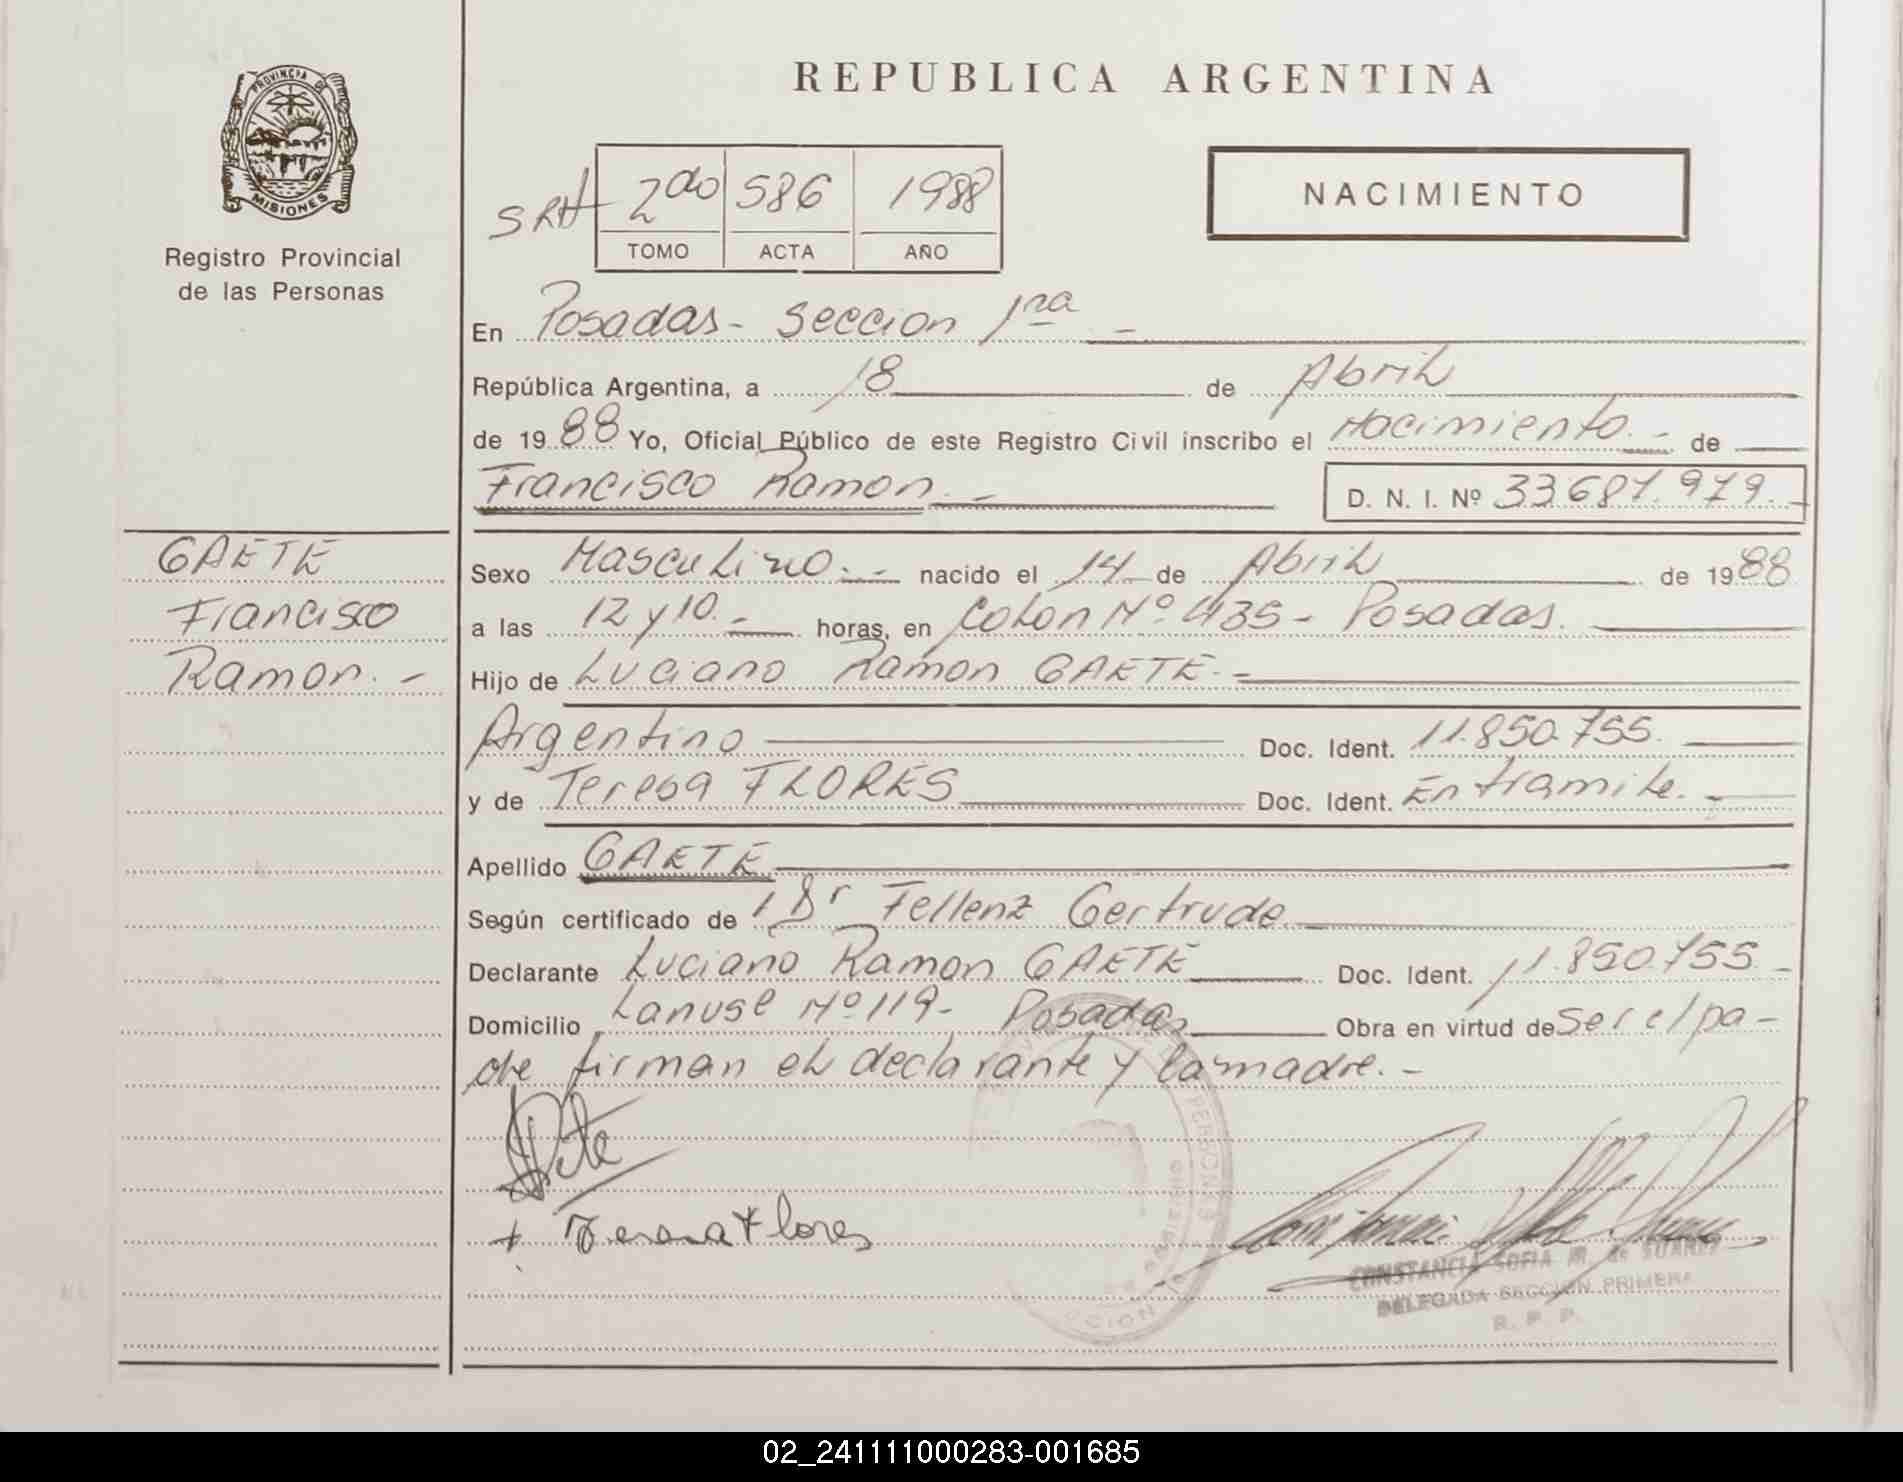 PROVINCIA DE
MISIONES
Registro Provincial
de las Personas
REPUBLICA ARGENTINA
SRH 2do 586 1988
TOMO ACTA AÑO
NACIMIENTO
En Posadas - Seccion 1ra -
República Argentina, a 18 de Abril
de 1988 Yo, Oficial Público de este Registro Civil inscribo el Nacimiento. - de
Francisco Ramon. -
D. N. I. Nº 33.687.979. -
GAETE
Francisco
Ramon. -
Sexo Masculino. - nacido el 14 de Abril de 1988
a las 12 y 10. - horas, en Colon Nº 435 - Posadas.
Hijo de Luciano Ramon GAETE. -
Argentino Doc. Ident. 11.850.755.
y de Teresa FLORES Doc. Ident. En tramite. -
Apellido GAETE
Según certificado de Dr Fellenz Gertrude
Declarante Luciano Ramon GAETE Doc. Ident. 11.850.755 -
Domicilio Lanuse Nº 119 - Posadas Obra en virtud de ser el pa-
dre firman el declarante y la madre. -
Teresa Flores
CONSTANCIA SOFIA M. de SUAREZ
DELEGADA SECCION PRIMERA
R. P. P.
02_241111000283-001685